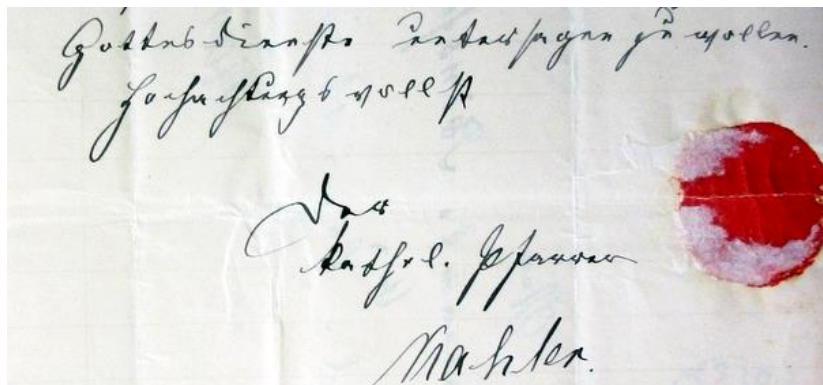 Gottesdienste untersagen zu wollen.
Hochachtungsvollst
Der
kathol. Pfarrer
Mahler.